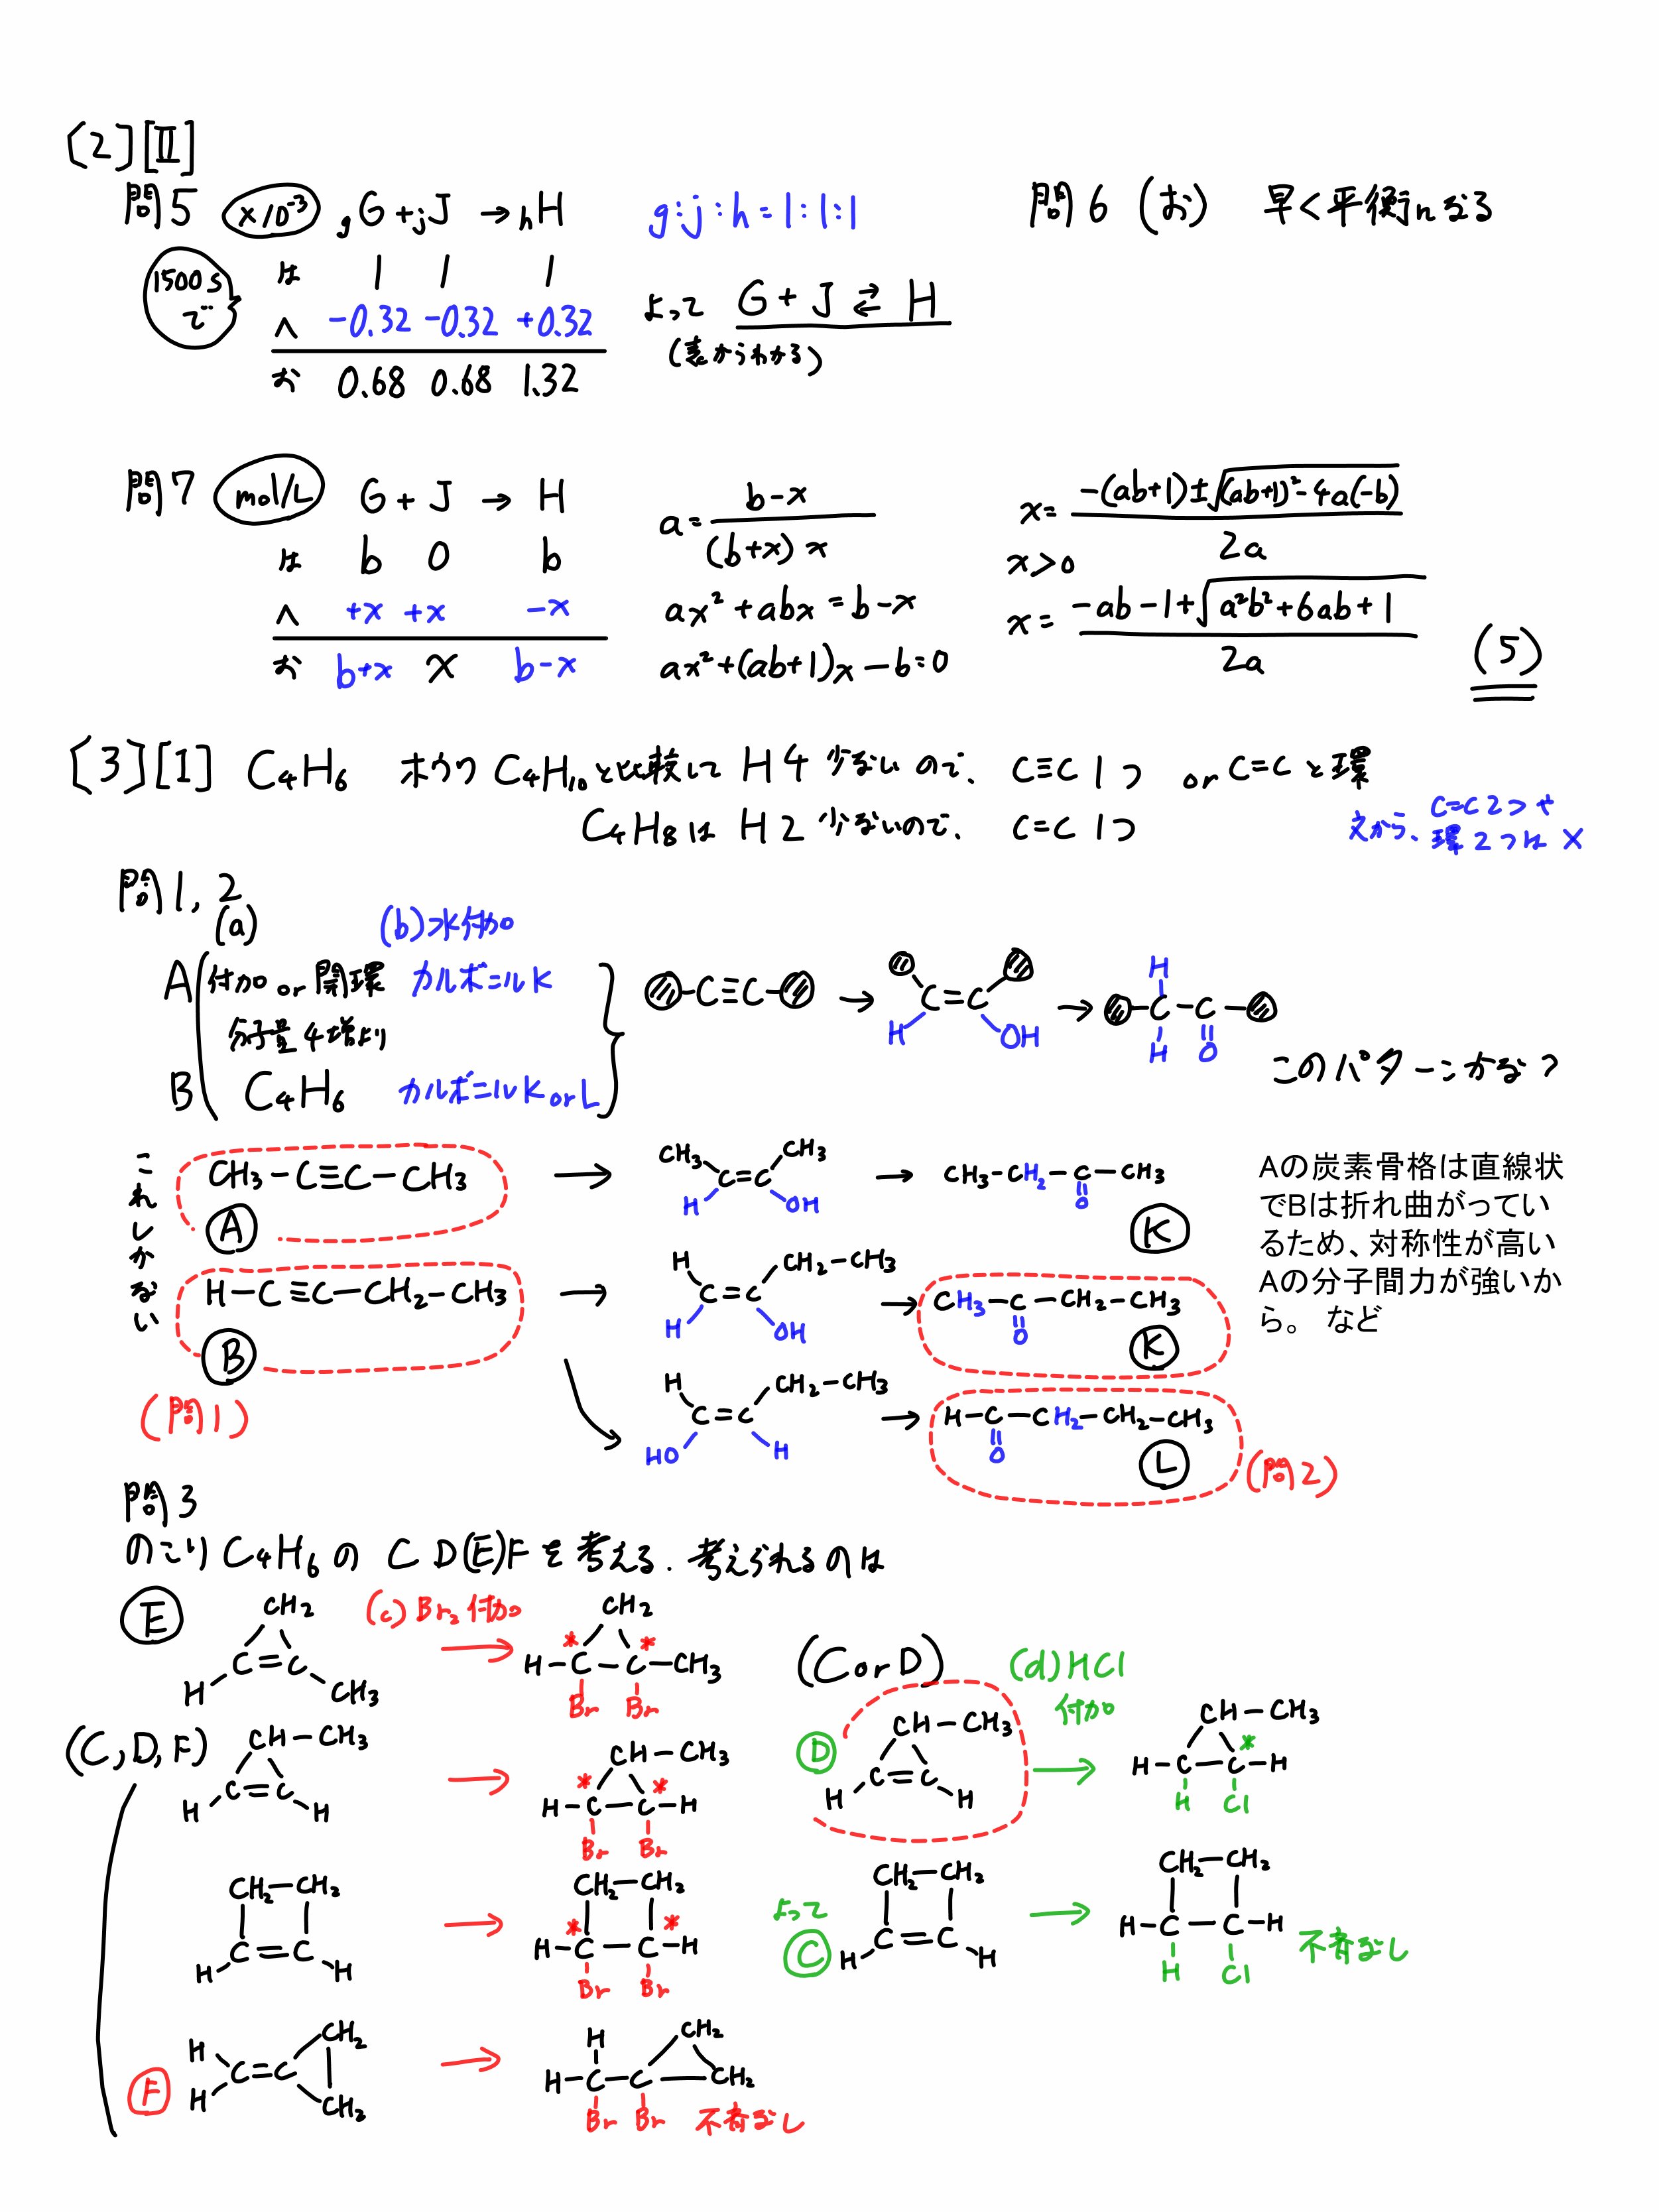 (2)[II]
問5 ×10⁻³ gG + jJ → hH g:j:h=1:1:1
1500sで
は 1 1 1
へ -0.32 -0.32 +0.32
お 0.68 0.68 1.32
よって G + J ⇄ H
(表からわかる)
問6 (お) 早く平衡になる
問7 mol/L G + J → H
は b 0 b
へ +x +x -x
お b+x x b-x
a = (b-x)/((b+x)x)
ax² + abx = b-x
ax²+(ab+1)x-b=0
x = (-(ab+1)±√((ab+1)²-4a(-b)))/2a
x>0
x = (-ab-1+√(a²b²+6ab+1))/2a
(5)
(3)[1] C₄H₆ ホウワ C₄H₁₀と比較して H4 少ないので、 C≡C 1つ or C=Cと環
C₄H₈は H2 少ないので、 C=C 1つ
文から、C=C 2つや
環2つは×
問1, 2
(a) (b)水付加
A 付加 or 開環 カルボニルK
分子量4増より
B C₄H₆ カルボニルK or L
-C≡C- → C=C H OH → H -C-C- H O
このパターンかな?
これしかない
CH₃-C≡C-CH₃ → CH₃ CH₃ C=C H OH → CH₃-CH₂-C-CH₃ O
A K
H-C≡C-CH₂-CH₃ → H CH₂-CH₃ C=C H OH → CH₃-C-CH₂-CH₃ O
B K
(問1)
H CH₂-CH₃ C=C HO H → H-C-CH₂-CH₂-CH₃ O
L (問2)
Aの炭素骨格は直線状
でBは折れ曲がってい
るため、対称性が高い
Aの分子間力が強いか
ら。 など
問3
のこりC₄H₆の C D(E)Fを考える. 考えられるのは
E CH₂ C=C H CH₃
(c) Br₂付加
→ CH₂ * * H-C-C-CH₃ Br Br
(C, D, F)
CH-CH₃ C=C H H → CH-CH₃ * * H-C-C-H Br Br
CH₂-CH₂ C=C H H → CH₂-CH₂ * * H-C-C-H Br Br
F H H C=C CH₂ CH₂ → H CH₂ H-C-C-CH₂ Br Br 不斉なし
(C or D) (d)HCl
付加
D CH-CH₃ C=C H H → CH-CH₃ * H-C-C-H H Cl
よって
C CH₂-CH₂ C=C H H → CH₂-CH₂ H-C-C-H H Cl 不斉なし